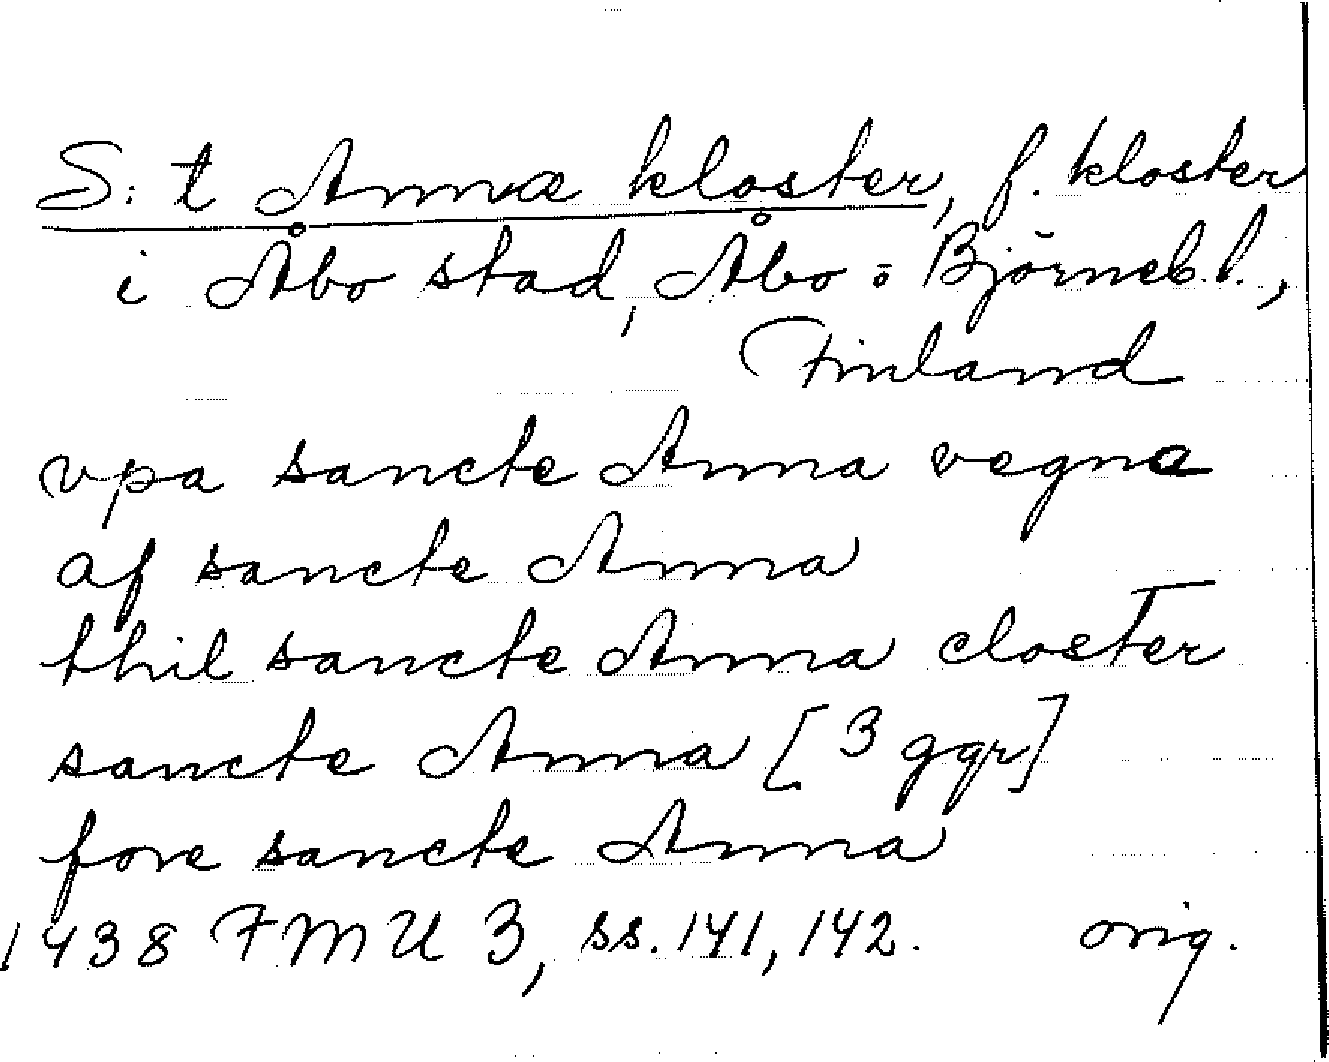 S:t Annæ kloster, f. kloster
i Åbo stad, Åbo o Björneb. l.,
Finland
vpa sancte Anna vegne
af sancte Anna
thil sancte Anna closter
sancte Anna [3 ggr]
fore sancte Anna
1438 FMU 3, ss. 141, 142. orig.